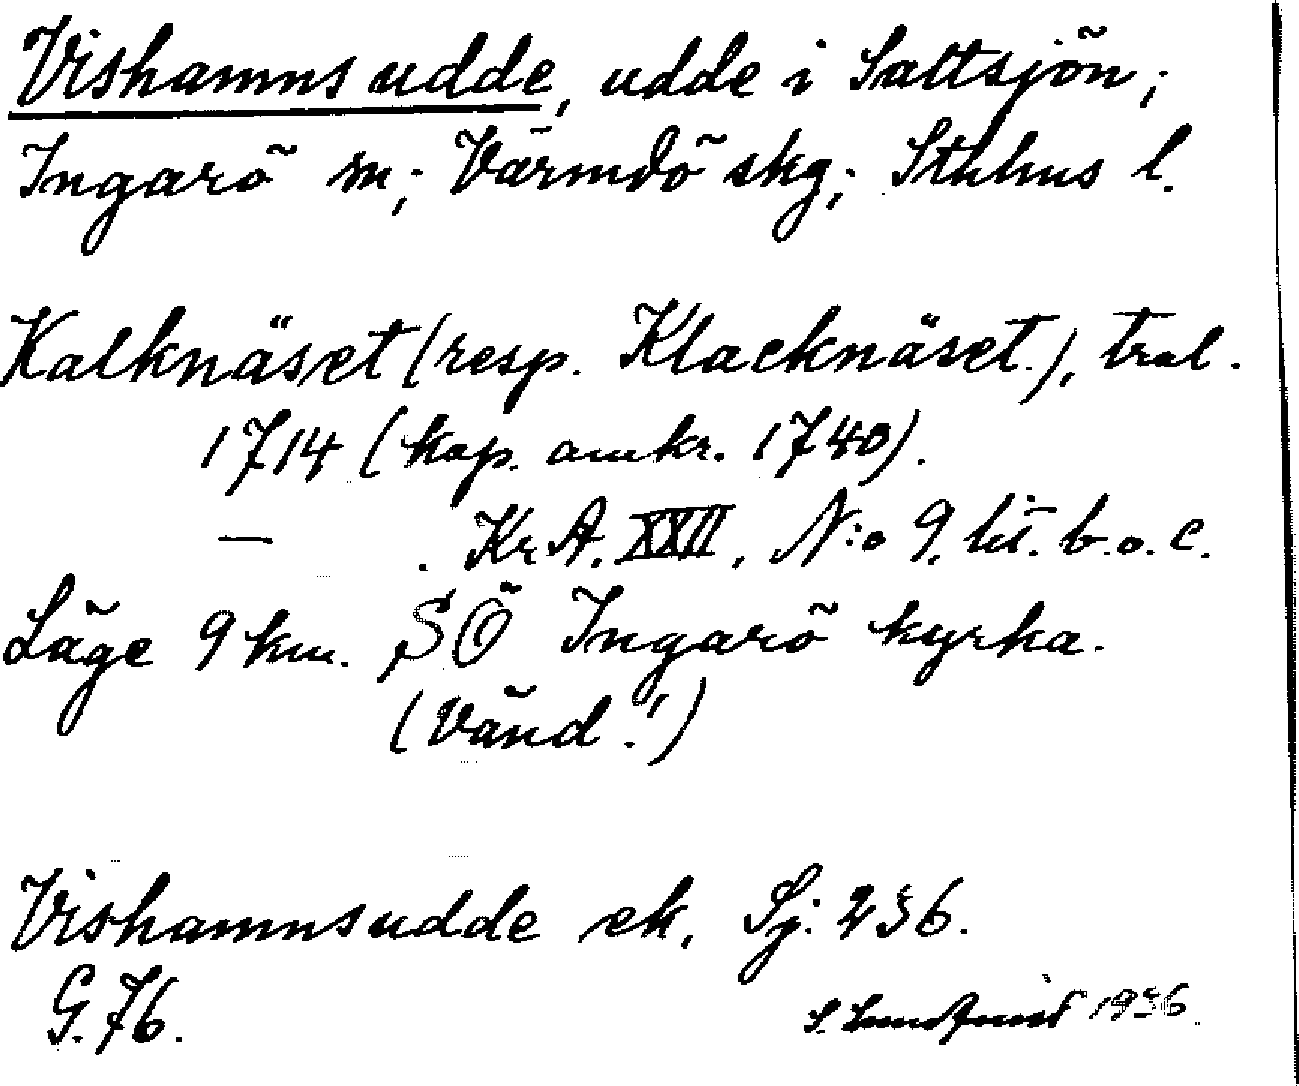 Vishamnsudde, udde i Saltsjön;
Ingarö sn; Värmdö skg; Sthlms l.
Kalknäset (resp. Klacknäset.), tral.
1714 (kop. omkr. 1740).
— . Kr.A. XXII, N:o 9. lit. b.o.c.
Läge 9 km. SÖ Ingarö kyrka.
(Vänd!)
Vishamnsudde ek, Sj: 236.
G. 76.
S. Lundqvist 1936.